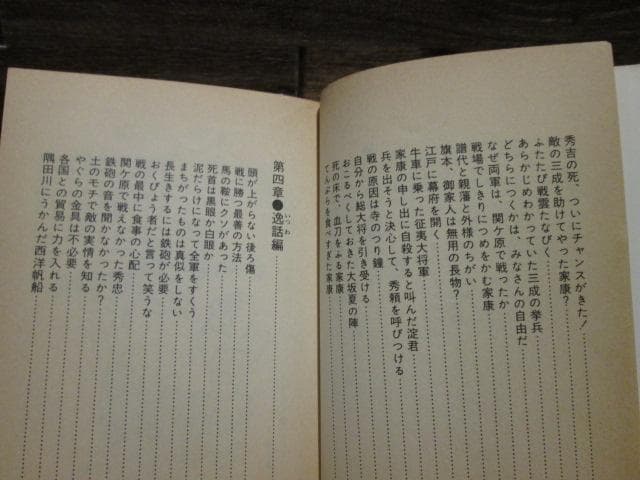 秀吉の死、ついにチャンスがきた!
敵の三成を助けてやった家康?
ふたたび戦雲たなびく
あらかじめわかっていた三成の挙兵
どちらにつくかは、みなさんの自由だ
なぜ両軍は、関ケ原で戦ったか
戦場でしきりにつめをかむ家康
譜代と親藩と外様のちがい
旗本、御家人は無用の長物?
江戸に幕府を開く
牛車に乗った征夷大将軍
家康の申し出に自殺すると叫んだ淀君
兵を出そうと決心して、秀頼を呼びつける
戦の原因は寺のつり鐘
自分から総大将を引き受ける
おこるべくしておきた大坂夏の陣
死の床で、血刀をふる家康
てんぷらを食べすぎた家康
第四章●逸話編
いつわ
頭が上がらない後ろ傷
戦に勝つ最善の方法
馬の鞍にクソがあった
死首は黒眼か白眼か
泥だらけになって全軍をすくう
まちがったものは真似をしない
長生きするには鉄砲が必要
おくびょう者だと言って笑うな
戦の最中に食事の心配
関ケ原で戦えなかった秀忠
鉄砲の音を聞かなかったか?
土のモチで敵の実情を知る
やぐらの金具は不必要
各国との貿易に力を入れる
隅田川にうかんだ西洋帆船